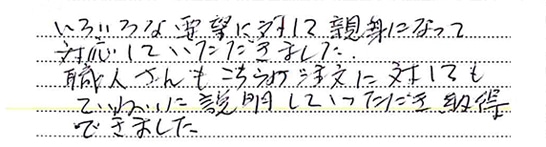 いろいろな要望に対して親身になって
対応していただきました.
職人さんもこちらの注文に対しても
ていねいに説明していっただき納得
できました